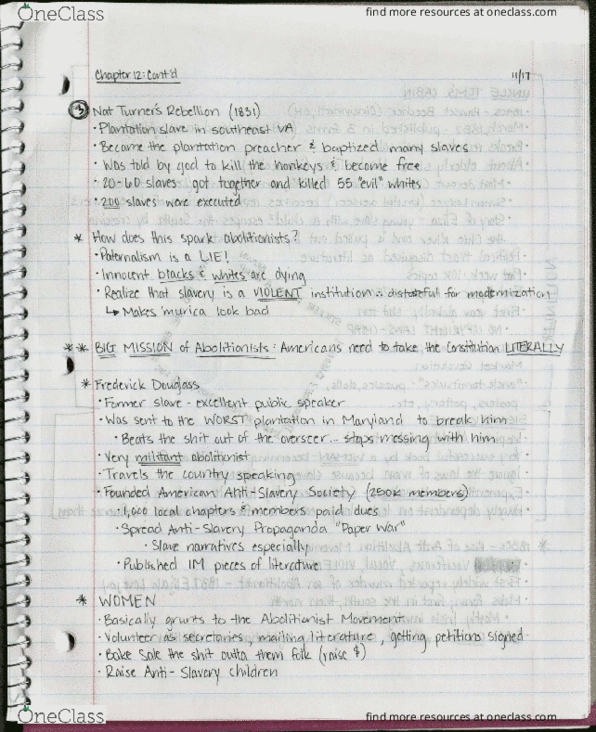 OneClass
find more resources at oneclass.com
Chapter 12: Cont'd
11/17
③ Nat Turner's Rebellion (1831)
· Plantation slave in southeast VA
· Became the plantation preacher & baptized many slaves
· Was told by god to kill the honkeys & become free
· 20-60 slaves got together and killed 55 "evil" whites
· 200 slaves were executed
* How does this spark abolitionists?
· Paternalism is a LIE!
· Innocent blacks & whites are dying
· Realize that slavery is a VIOLENT institution ∴ distasteful for modernization
↳ Makes 'murica look bad
** BIG MISSION of Abolitionists: Americans need to take the Constitution LITERALLY
* Frederick Douglass
· Former slave - excellent public speaker
· Was sent to the WORST plantation in Maryland to break him
· Beats the shit out of the overseer... stops messing with him
· Very militant abolitionist
· Travels the country speaking
· Founded American Anti-Slavery Society (200K members)
· 1,000 local chapters & members paid dues
· Spread Anti-Slavery Propaganda "Paper War"
· Slave narratives especially
· Published 1M pieces of literature
* WOMEN
· Basically grunts to the Abolitionist Movement
· Volunteer as secretaries, mailing literature, getting petitions signed
· Bake Sale the shit outta them folk (raise $)
· Raise Anti-Slavery children
OneClass
find more resources at oneclass.com